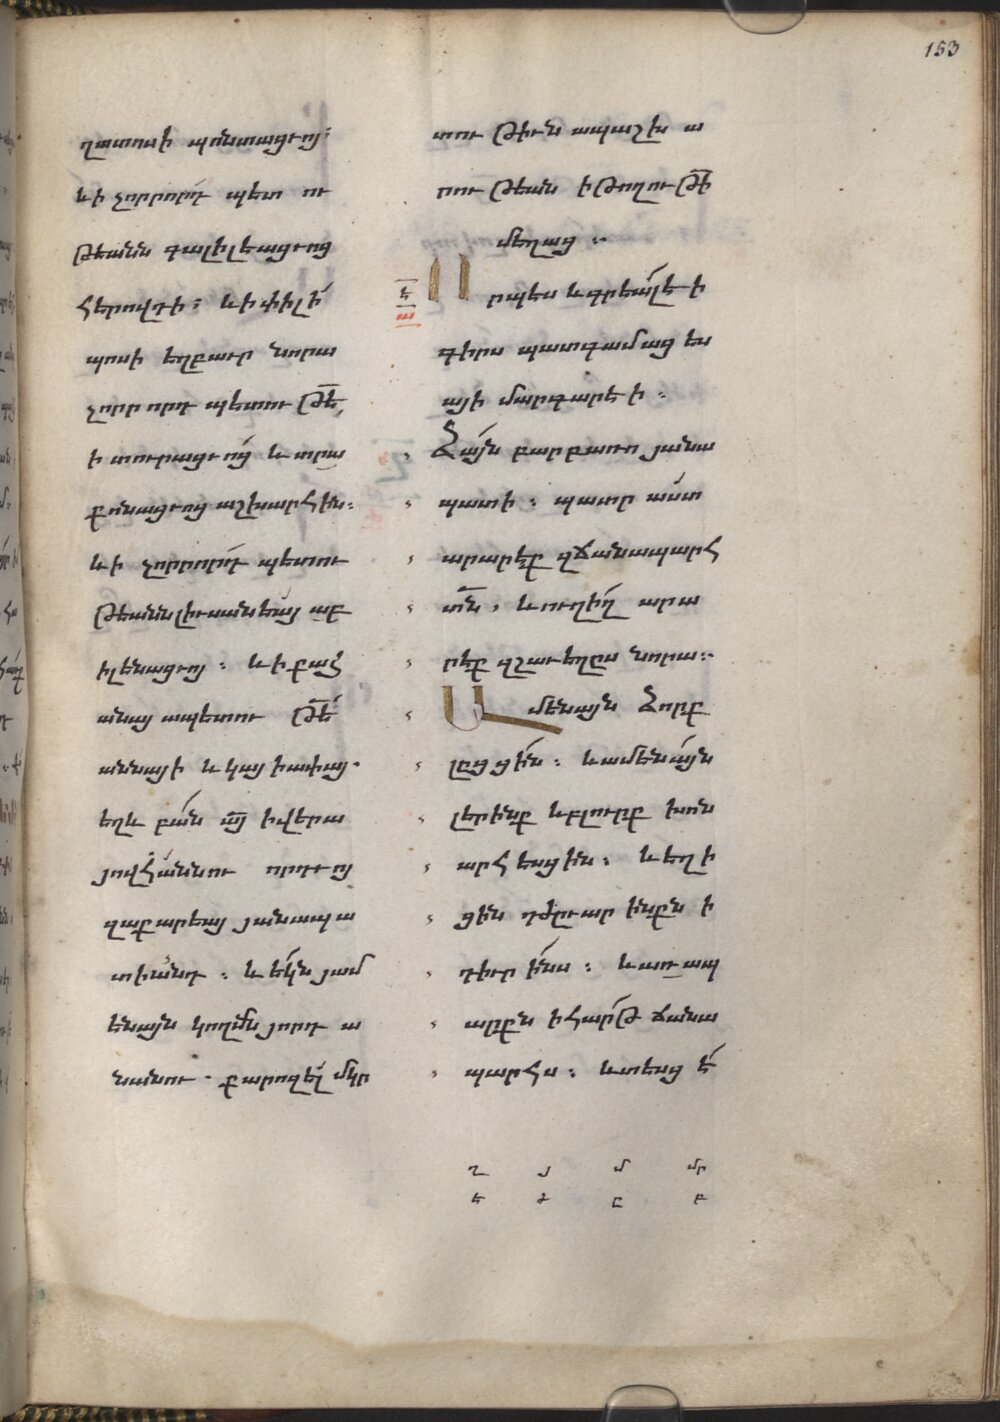 153
ղատոսի պոնտացւոյ։
և ի չորրորդ պետ ու
թեանն գալիլեացւոց
հերովդի։ և ի փիլի
պոսի եղբաւր նորա
չորր որդ պետու թէ,
ի տուրացւոց և տրա
քոնացւոց աշխարհին։
և ի չորրորդ պետու
թեանն լիւսանեայ աբ
իլենացւոյ։ և ի քահ
անայ ապետու թե
աննայի և կայ իափայ.
եղև բան այ ի վերա
յովհաննու որդւոյ
զաքարեայ յանապա
տիանդ։ և եկն յամ
ենայն կողմն յորդ ա
նանու. քարոզել մկր
տու թիւն ապաշխ ա
րու թեան ի թողու թի
մեղաց։
ե
ա
Ո րպես և գրեալ է ի
գիրս պատգամաց ես
այի մարգարէ ի։
Ձայն բարբառո յանա
պատի։ պատր աստ
արարէք զճանապարհ
տն, և ուղիղ արա
րէք զշաւեղըս նորա։
Ա մենայն Ձորք
լըցցին։ և ամենայն
լերինք և բլուրք խոն
արհ եսցին։ և եղի
ցին դժըւար ինքն ի
դիւր ինս։ և առ ապ
արքն ի հարթ ճանա
պարհս։ և տեսց է
ղ յ մ մր
ե թ ը բ